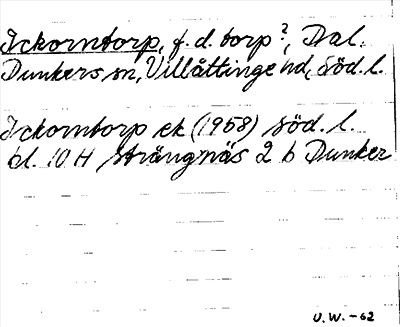 Ickorntorp, f. d. torp?, Dal.
Dunkers sn, Villåttinge hd, Söd. l.
Ickorntorp ek (1958) Söd. l.
bl. 10 H Strängnäs 2 b Dunker
U.W. -62